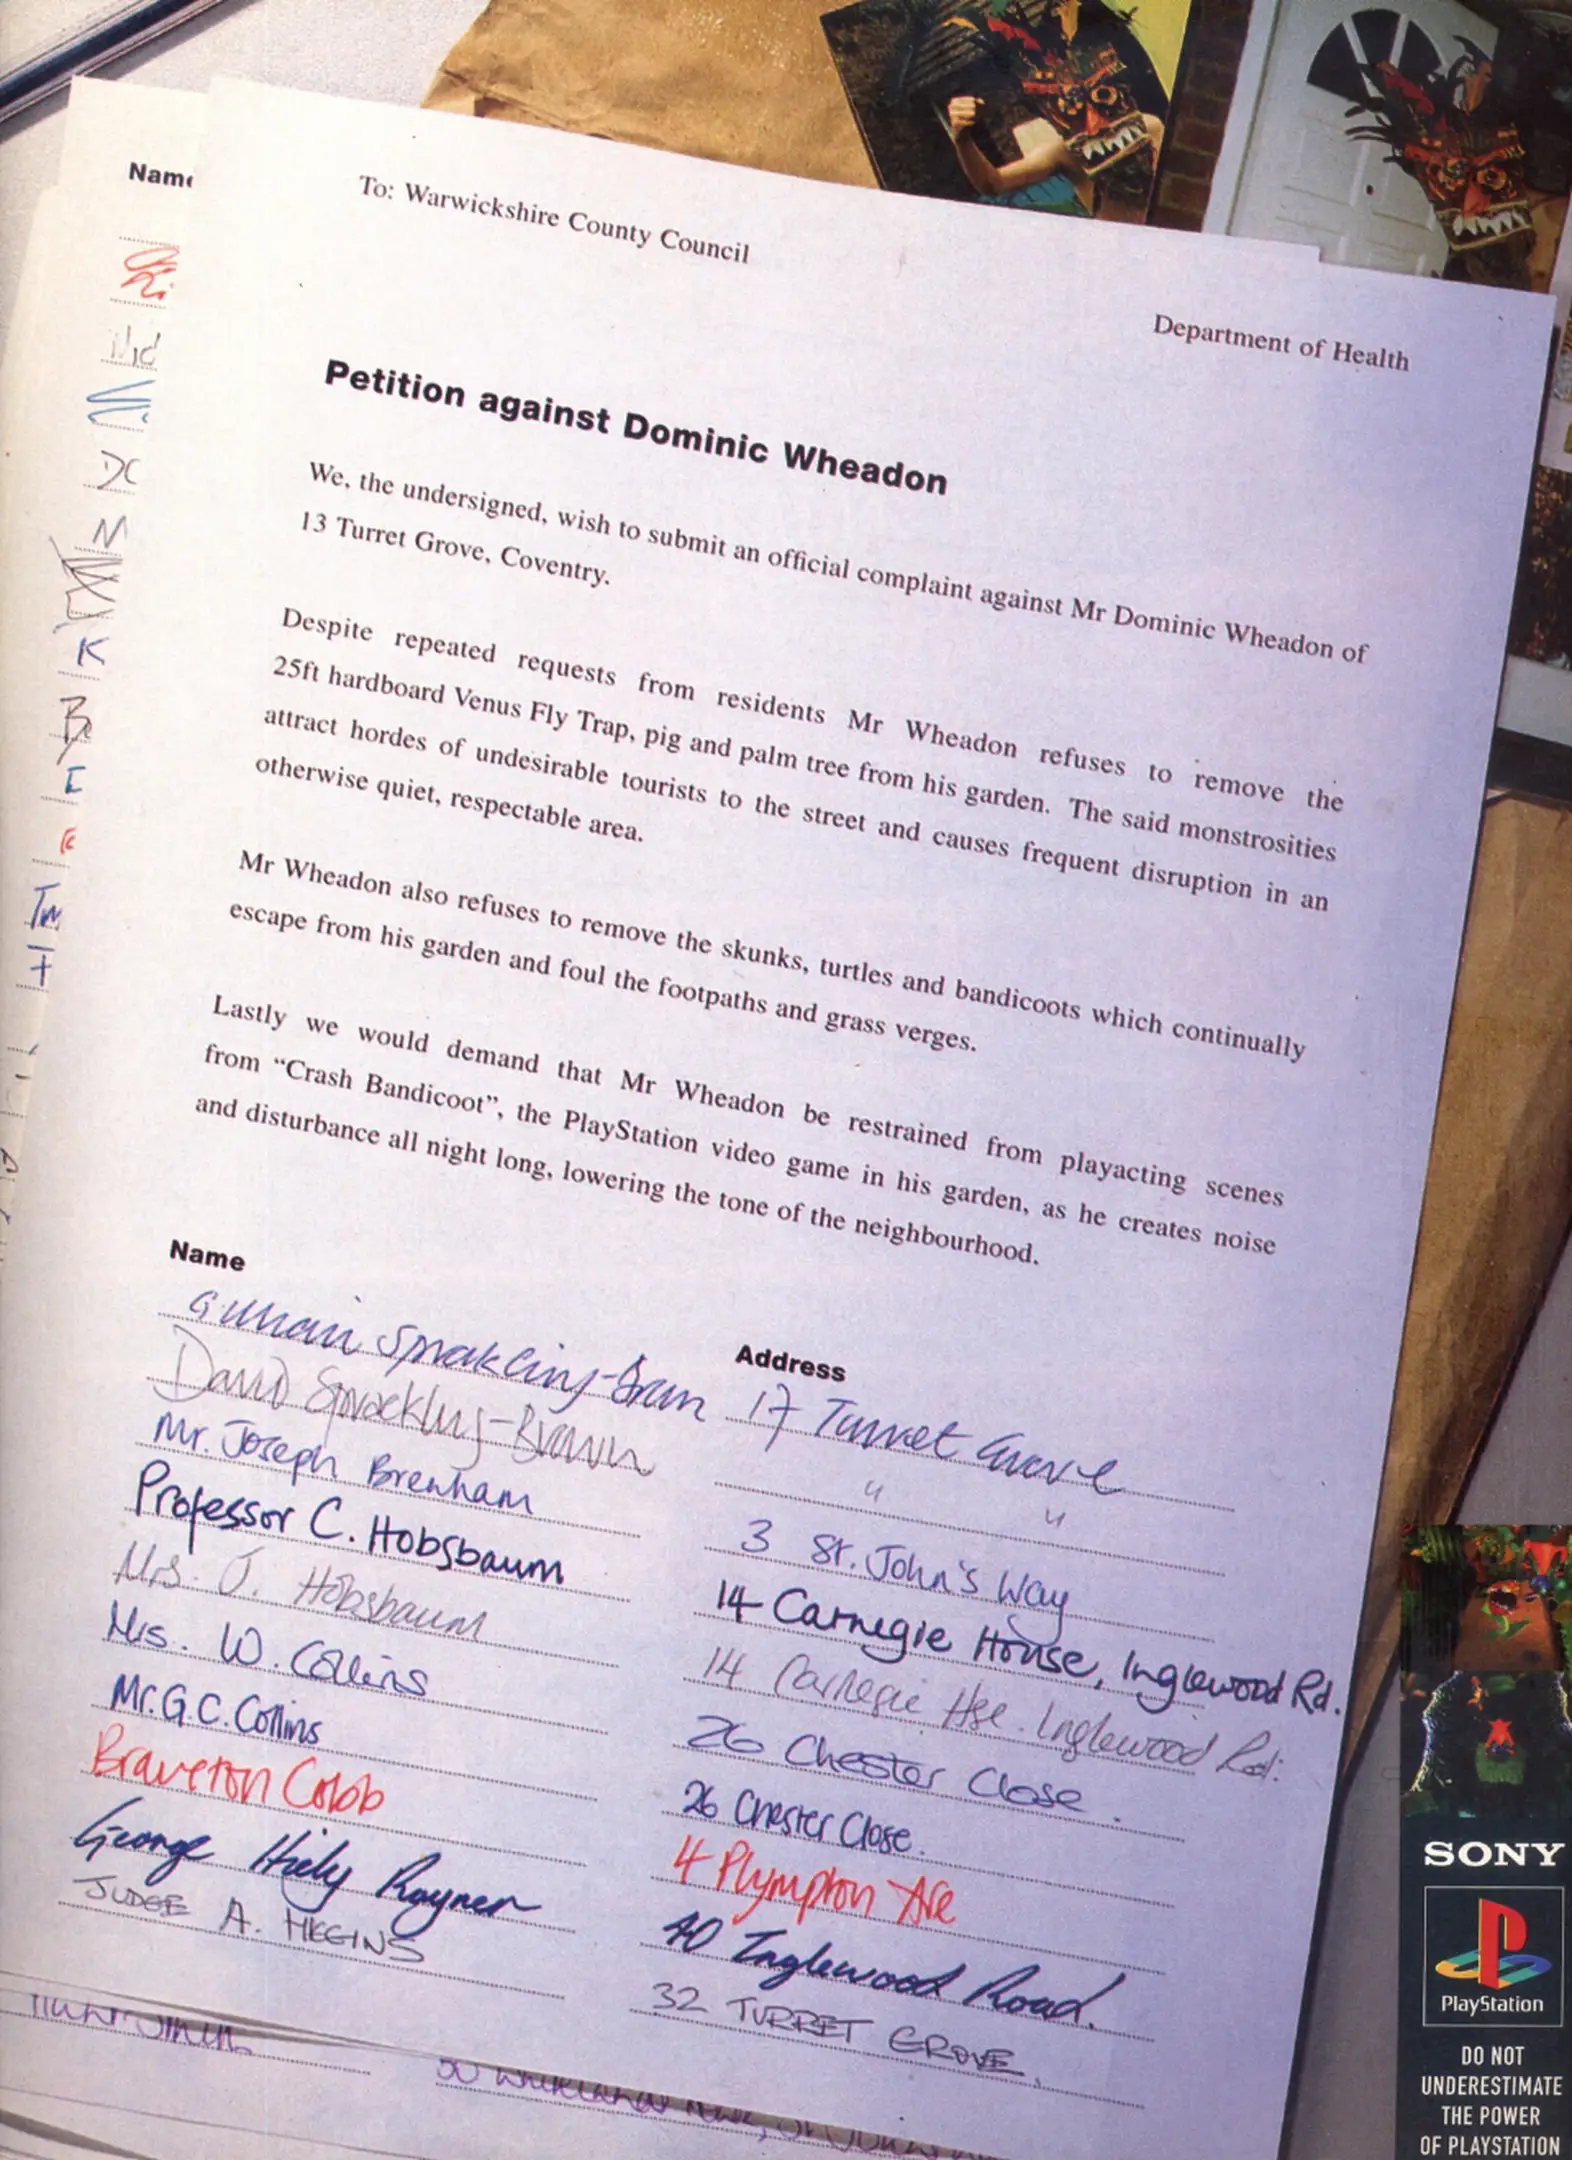 Name
To: Warwickshire County Council
Department of Health
Petition against Dominic Wheadon
We, the undersigned, wish to submit an official complaint against Mr Dominic Wheadon of
13 Turret Grove, Coventry.
Despite repeated requests from residents Mr Wheadon refuses to remove the
25ft hardboard Venus Fly Trap, pig and palm tree from his garden. The said monstrosities
attract hordes of undesirable tourists to the street and causes frequent disruption in an
otherwise quiet, respectable area.
Mr Wheadon also refuses to remove the skunks, turtles and bandicoots which continually
escape from his garden and foul the footpaths and grass verges.
Lastly we would demand that Mr Wheadon be restrained from playacting scenes
from “Crash Bandicoot”, the PlayStation video game in his garden, as he creates noise
and disturbance all night long, lowering the tone of the neighbourhood.
Name Address
Sprakling-Bran 17 Turret Grove
David Sprackling-Brown " "
Mr. Joseph Brenham 3 St. John's Way
Professor C. Hobsbaum 14 Carnegie House, Inglewood Rd.
Mrs. J. Hobsbaum 14 Carnegie Hse. Inglewood Rd.
Mrs. W. Collins 26 Chester Close.
Mr. G. C. Collins 26 Chester Close.
Braverton Cobb 4 Plympton Ave
George Hiely Rayner 40 Inglewood Road.
JUDGE A. HIGGINS 32 TURRET GROVE.
SONY
PlayStation
DO NOT
UNDERESTIMATE
THE POWER
OF PLAYSTATION